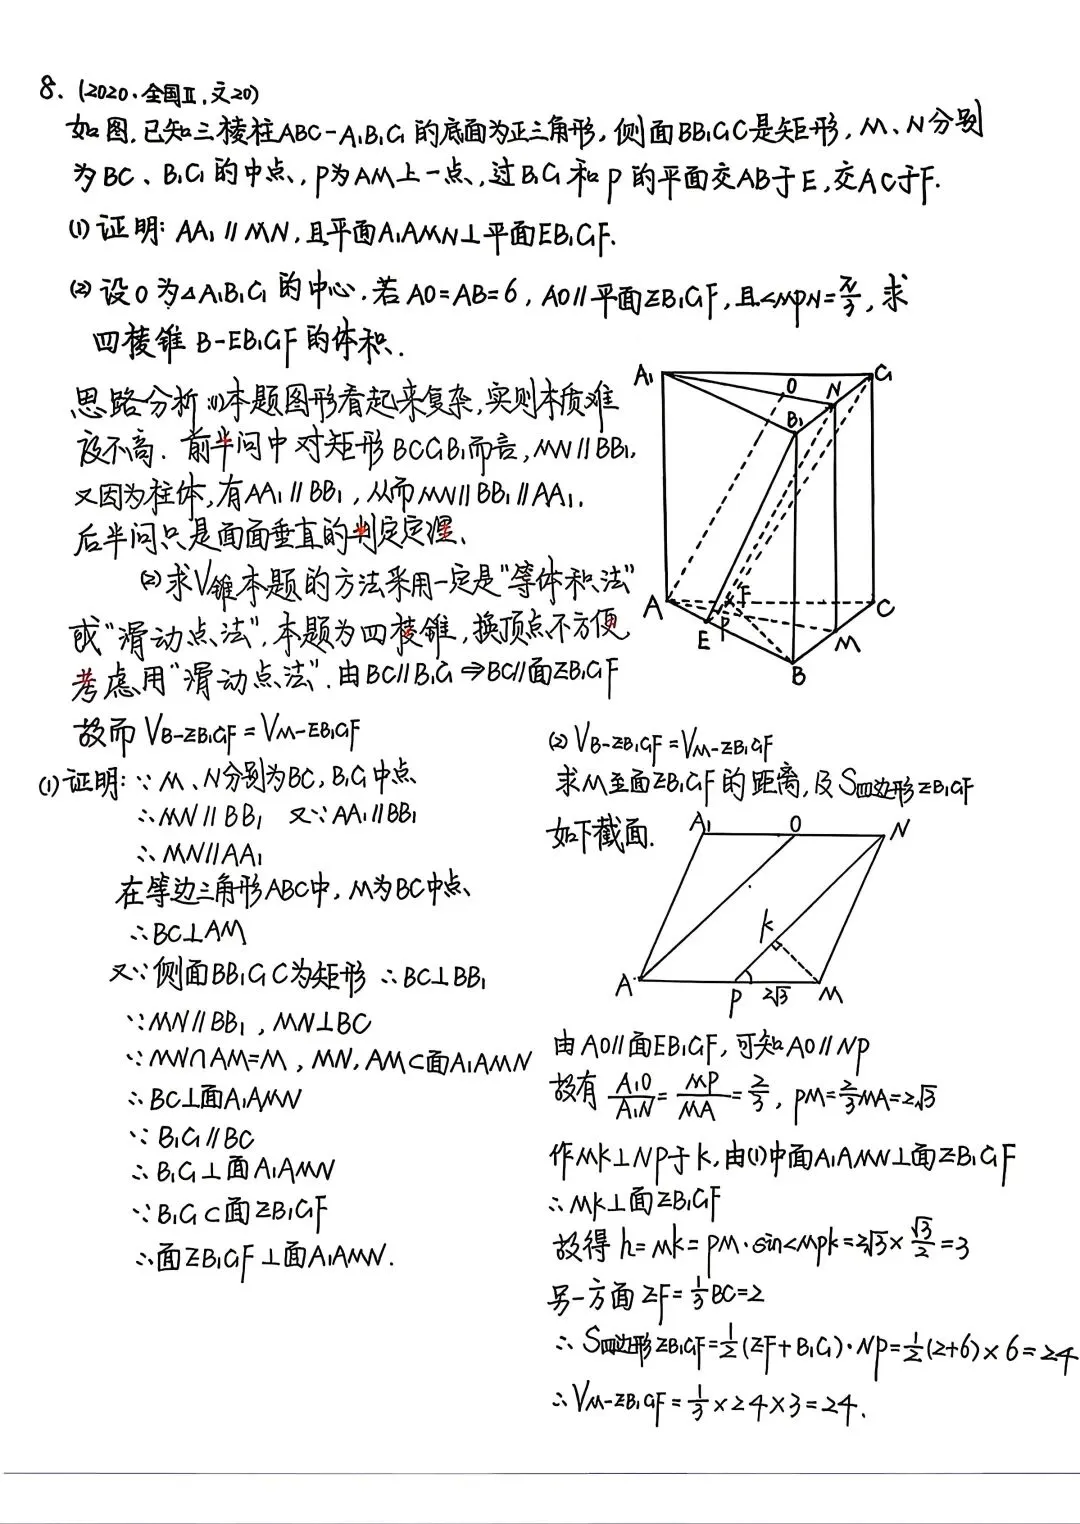 8. (2020·全国Ⅱ,文20)
如图,已知三棱柱ABC-A₁B₁C₁的底面为正三角形,侧面BB₁C₁C是矩形,M、N分别
为BC、B₁C₁的中点,P为AM上一点,过B₁C₁和P的平面交AB于E,交AC于F.
(1)证明:AA₁∥MN,且平面A₁AMN⊥平面EB₁C₁F.
(2)设O为△A₁B₁C₁的中心.若AO=AB=6,AO∥平面EB₁C₁F,且∠MPN=π/3,求
四棱锥B-EB₁C₁F的体积.
思路分析:(1)本题图形看起来复杂,实则本质难
度不高.前半问中对矩形BCC₁B₁而言,MN∥BB₁,
又因为柱体,有AA₁∥BB₁,从而MN∥BB₁∥AA₁.
后半问只是面面垂直的判定定理.
(2)求V锥本题的方法采用一定是"等体积法"
或"滑动点法".本题为四棱锥,换顶点不方便,
考虑用"滑动点法".由BC∥B₁C₁⇒BC∥面EB₁C₁F
故而V_{B-EB₁C₁F}=V_{M-EB₁C₁F}
A₁
O
N
C₁
B₁
A
F
C
E
P
M
B
(1)证明:∵M、N分别为BC,B₁C₁中点
∴MN∥BB₁ 又∵AA₁∥BB₁
∴MN∥AA₁
在等边三角形ABC中,M为BC中点
∴BC⊥AM
又∵侧面BB₁C₁C为矩形 ∴BC⊥BB₁
∵MN∥BB₁,MN⊥BC
∵MN∩AM=M,MN,AM⊂面A₁AMN
∴BC⊥面A₁AMN
∵B₁C₁∥BC
∴B₁C₁⊥面A₁AMN
∵B₁C₁⊂面EB₁C₁F
∴面EB₁C₁F⊥面A₁AMN.
(2)V_{B-EB₁C₁F}=V_{M-EB₁C₁F}
求M至面EB₁C₁F的距离,及S四边形EB₁C₁F
如下截面.
A₁
O
N
K
A
P
2√3
M
由AO∥面EB₁C₁F,可知AO∥NP
故有 A₁O/A₁N=MP/MA=2/3,PM=2/3MA=2√3
作MK⊥NP于K,由(1)中面A₁AMN⊥面EB₁C₁F
∴MK⊥面EB₁C₁F
故得h=MK=PM·sin∠MPK=2√3×√3/2=3
另一方面EF=1/3BC=2
∴S四边形EB₁C₁F=1/2(EF+B₁C₁)·NP=1/2(2+6)×6=24
∴V_{M-EB₁C₁F}=1/3×24×3=24.